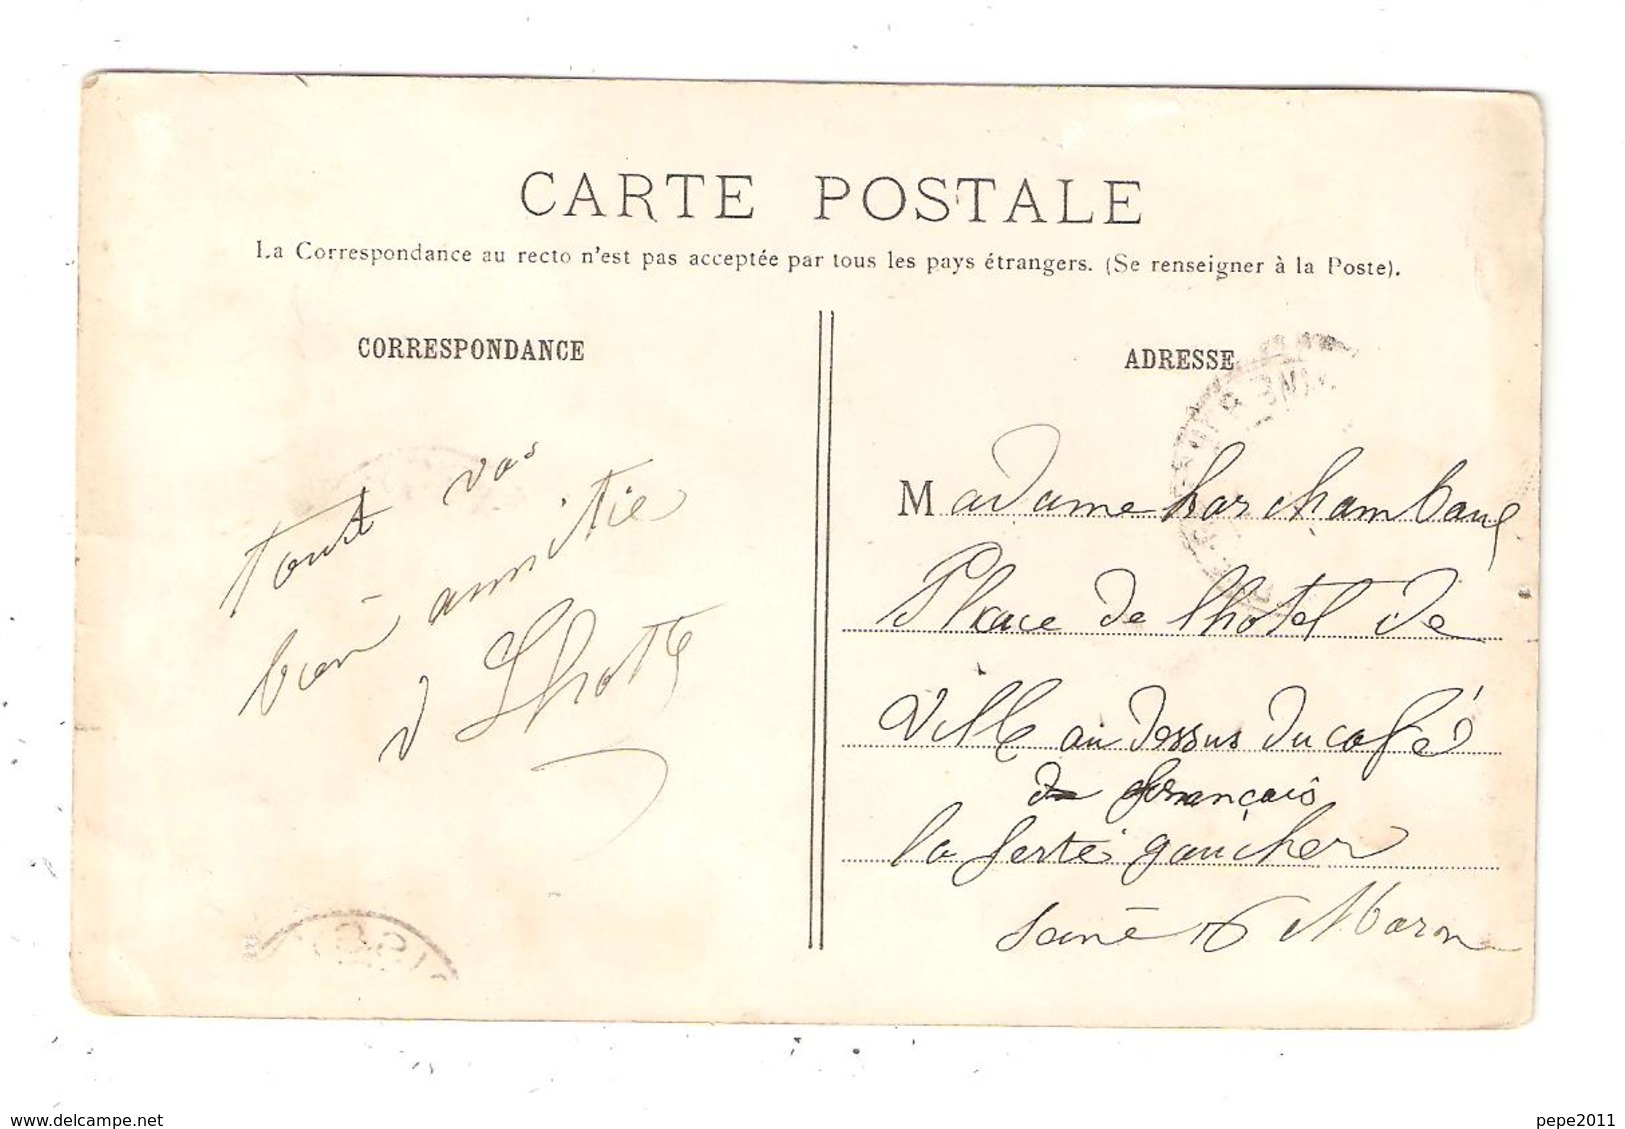 CARTE POSTALE
La Correspondance au recto n'est pas acceptée par tous les pays étrangers. (Se renseigner à la Poste).
CORRESPONDANCE
Tout vos
bien amitie
d Lhotte
ADRESSE
Madame harchambauf
Place de lhotel de
Ville au dessus du café
de francais
la ferte gaucher
Seine et Marne
www.delcampe.net
pepe2011